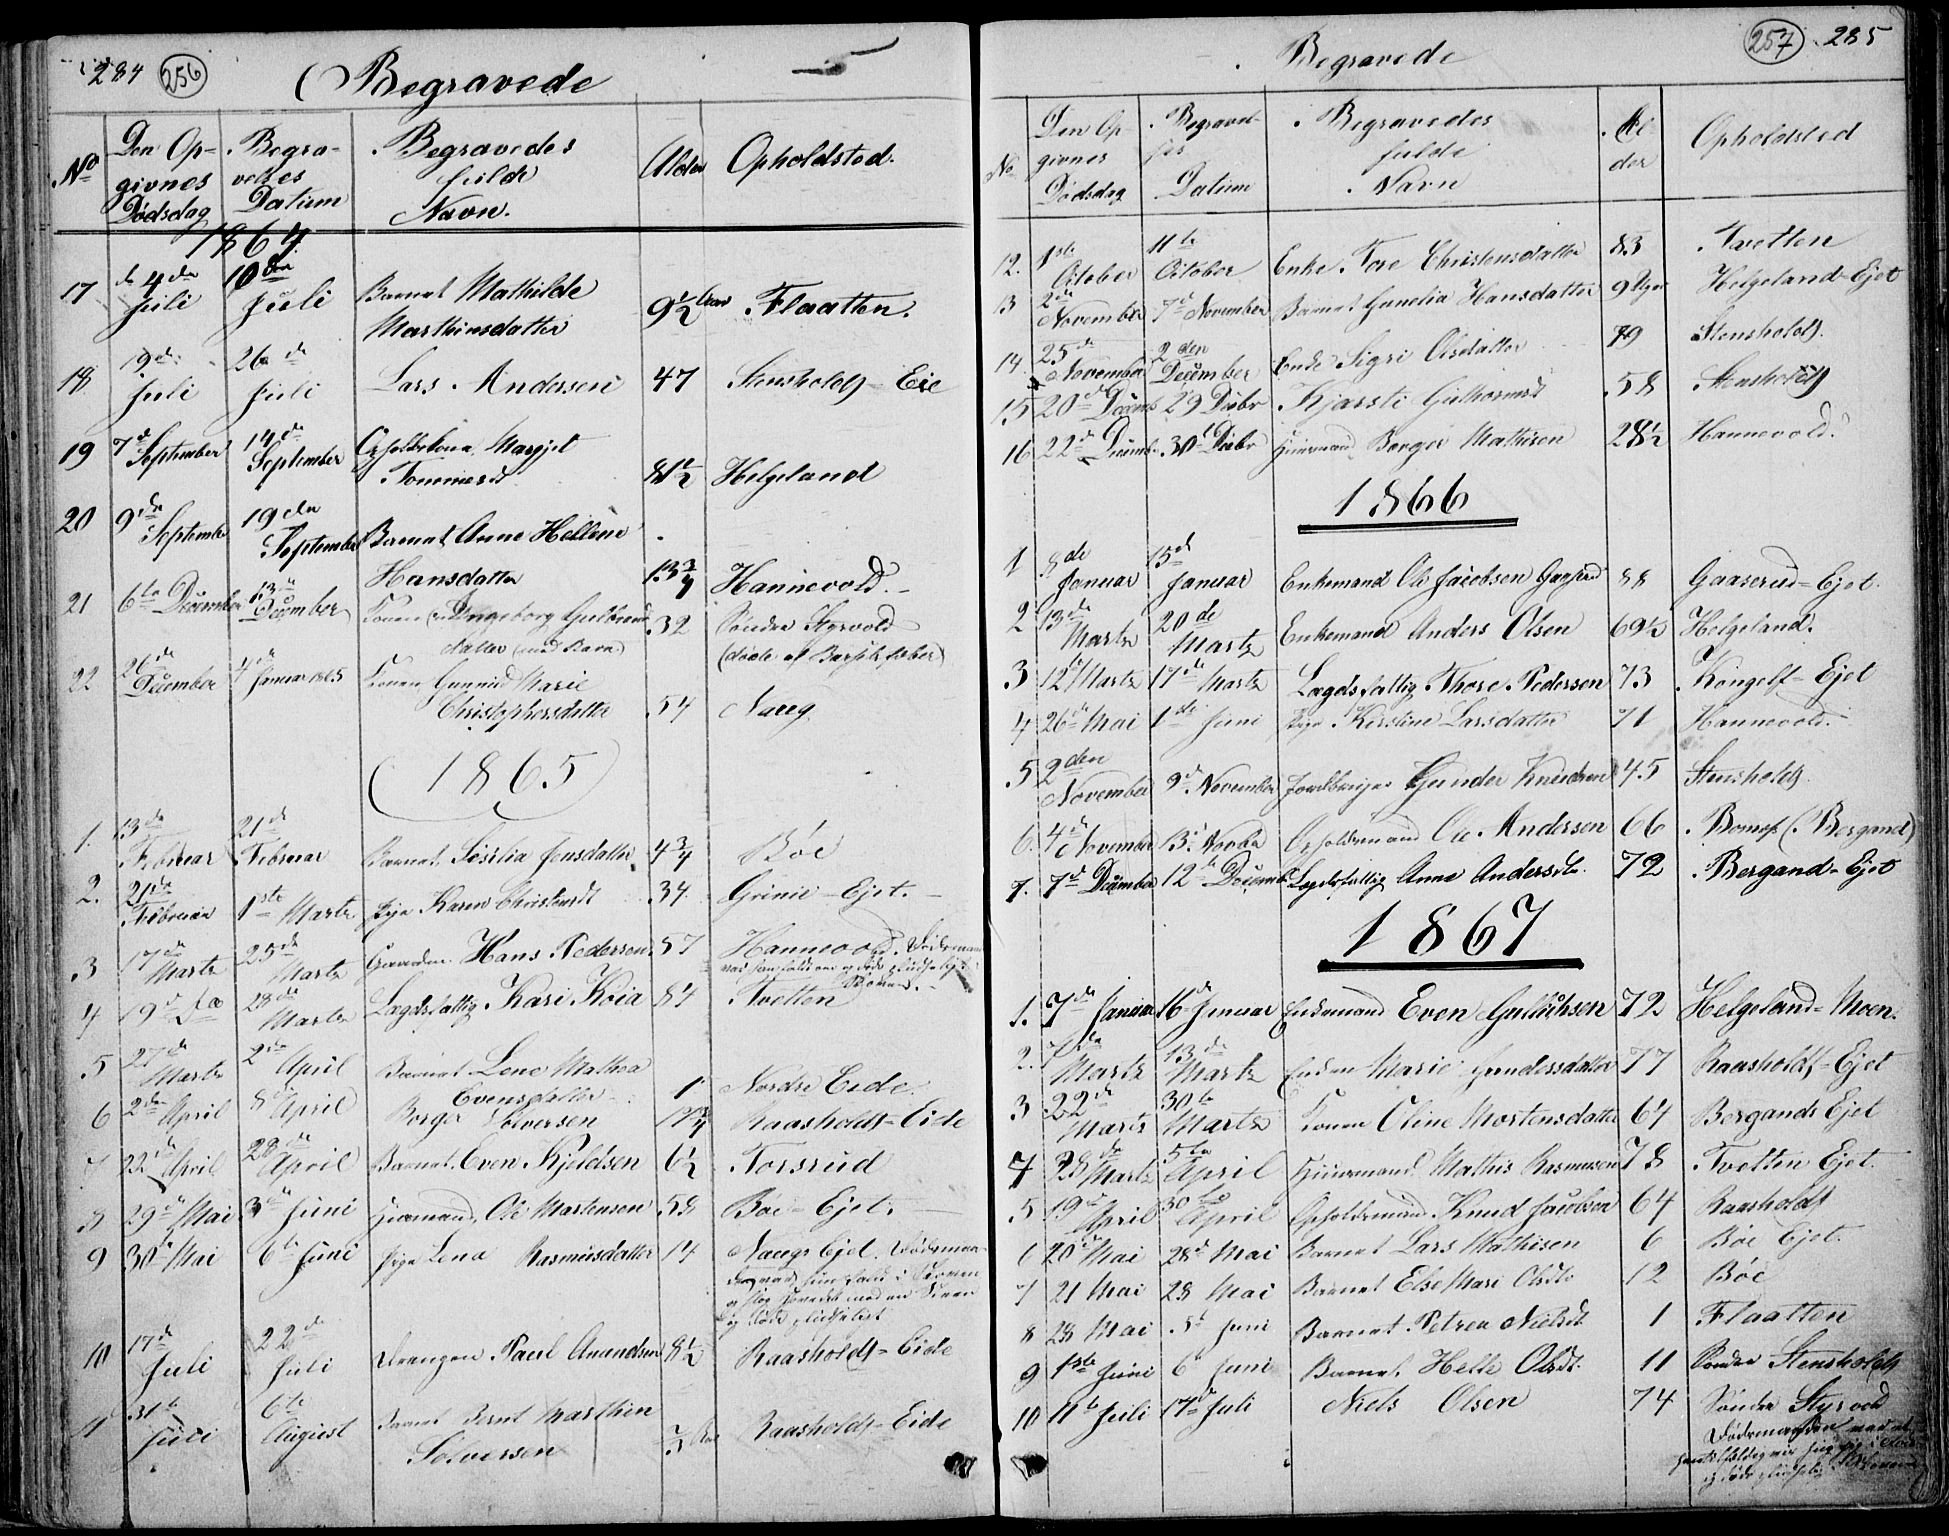 284 256
Begravede
No Den Opgivnes Dödsdag Begravelses Datum Begravedes fulde Navn. Alder Opholdsted.
1864
17 d 4de Juli 10de Juli Barnet Mathilde Marthinsdatter 9 1/2 Flaatten.
18 19de Juli 26de Juli Lars Andersen 47 Stensholdt-Eie
19 7d September 14de September Margjet Tommesd 81 1/2 Helgeland
20 9de September 19de September Barnet Anne Hellene Hansdatter 13 3/4 Hannevold.
21 6te December 13de December Konen Ingeborg Gulbrandsdatter (med Barn) 32 Söndre Styrvold (döde af Barselfeber)
22 26de December 4de Januar 1865 Konen Gunnild Marie Christophersdatter 54 Nareg
(1865)
1. 13de Februar 21de Februar Barnet Sesilia Jensdatter 4 3/4 Böe
2. 21de Februar 1ste Martz Pige Karen Christensdt 34. Grinie-Ejet.
3 17de Martz 25de Martz Hans Pedersen 57 Hannevold.
4 19d Do 28de Martz Lægdsfattig Kari Koia 84 Tvetten
5 27de Martz 2de April Barnet Lene Mathea Evensdatter 1 Nordre Eide
6 2de April 8d April Borger Solversen Raasholdt-Eide
7 22de April 28de April Barnet Even Kjeldsen 6 1/2 Torsrud
8 29de Mai 3de Juni Huusmand Ole Martensen 58 Böe-Ejet.
9 30te Mai 6te Juni Pige Lena Rasmusdatter 14 Naregs Ejet.
10 17de Juli 22de Juli Drengen Paul Amundsen 8 1/2 Raasholdt-Eide
11 31te Juli 6te August Barnet Bernt Marthien Solversen Raasholdt-Eide
257 285
Begravede
No Den Opgivnes Dödsdag Begravelses Datum Begravedes fulde Navn Alder Opholdsted
12. 1ste October 11te October Enke Tore Christensdatter 83 Tvetten
13 2de November 7d November Barnet Gunelia Hansdatter 9 Uger Helgeland-Ejet
14. 25de November 2den December Enke Sigri Olsdatter 79 Stensholdt.
15 20de Decemb 29 Decbr Kjersti Guthormsd 58 Stensholdt
16 22de Decemb. 30te Decbr Huusmand Borger Mathisen 28 1/2 Hannevold.
1866
1 8de Januar 15de Januar Enkemand Ole Jacobsen 88 Gaaserud-Ejet.
2 13de Martz 20de Martz Enkemand Anders Olsen 69 1/2 Helgeland.
3 12te Martz 17de Martz Lægdsfattig Thore Pedersen 73 Kongelf-Ejet
4 26de Mai 1de Juni Pige Kirstine Larsdatter 71 Hannevold.
5 2den November 9d November Gunder Knudsen 45 Stensholdt
6. 4de November 13d Novbr Opholdsmand Ole Andersen 66 (Bergand)
7. 7de December 12te Decemb Lægdsfattig Anne Andersdt. 72 Bergand-Ejet
1867
1. 7de Januar 16de Januar Enkemand Even Gulliksen 72 Helgeland-Moen.
2. 7de Martz 13de Martz Enken Marie Gundersdatter 77 Raasholdt-Ejet
3 22de Martz 30te Martz Konen Oline Mortensdatter 64 Bergands Ejet
4 28de Martz 5te April Huusmand Mathis Rasmusen 78 Tvetten Ejet.
5 19de April 30te April Opholdsmand Knud Jacobsen 64 Raasholdt
6 20de Mai 28d Mai Barnet Lars Mathisen 6 Böe Ejet.
7 21 Mai 28 Mai Barnet Else Mari Olsdt 12 Böe
8 28 Mai 5d Juni Barnet Petrea Nielsdt 1 Flaatten
9 1ste Juni 6d Juni Barnet Helle Olsdt. 11 Söndre Stensholdt
10 11te Juli 17de Juli Niels Olsen 74 Söndre Styrvold